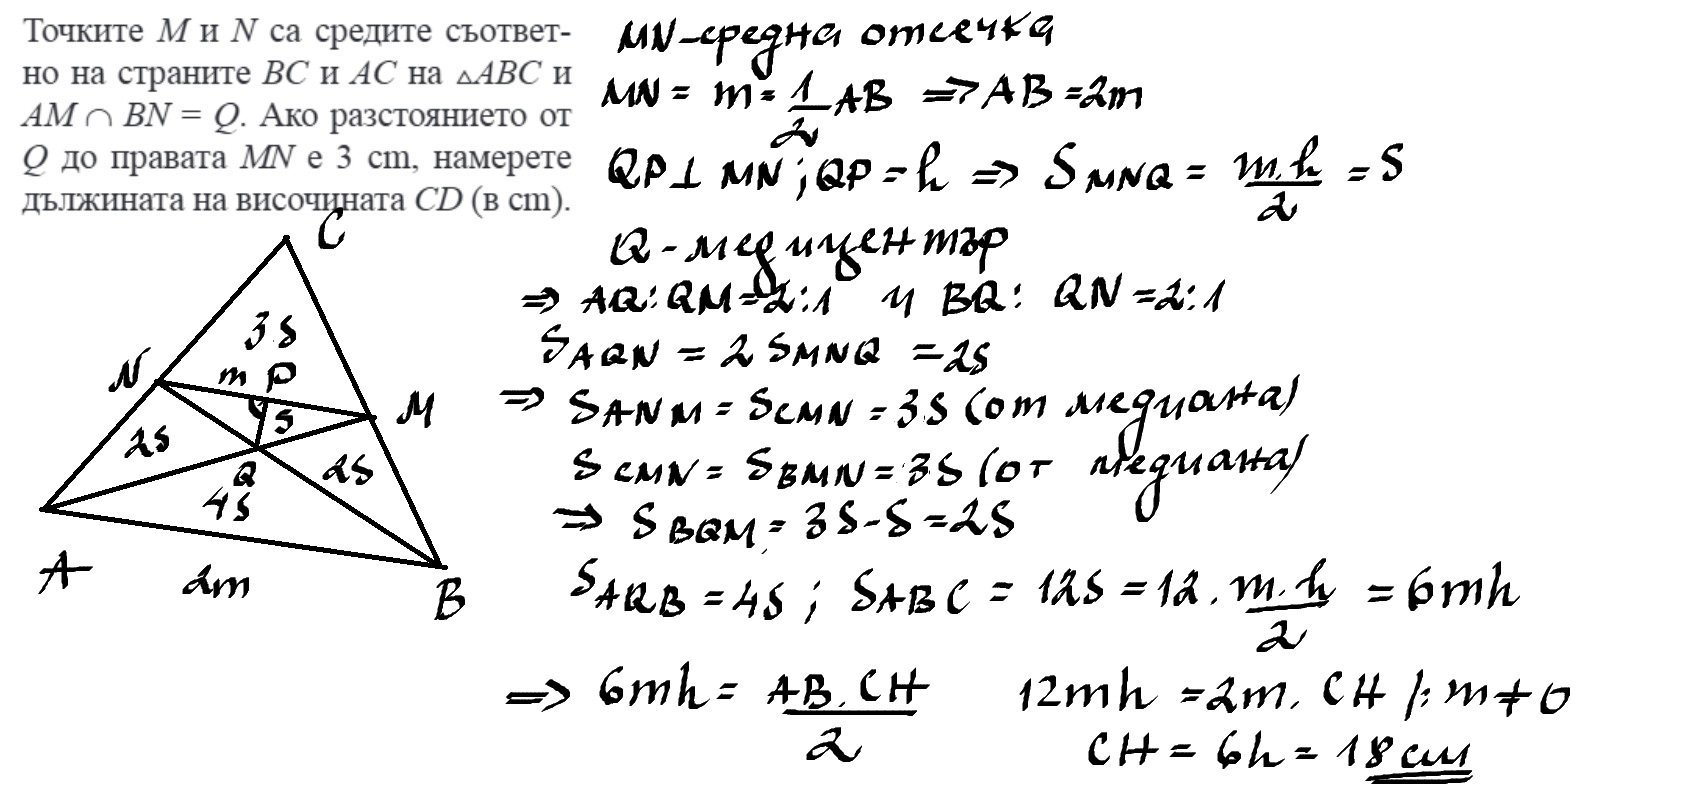 Точките M и N са средите съответ-
но на страните BC и AC на △ABC и
AM ∩ BN = Q. Ако разстоянието от
Q до правата MN е 3 cm, намерете
дължината на височината CD (в cm).
MN-средна отсечка
MN = m = 1/2 AB => AB = 2m
QP⊥ MN ; QP = h => S MNQ = m.h/2 = S
Q - медицентър
=> AQ:QM=2:1 и BQ: QN=2:1
S AQN = 2 S MNQ = 2S
=> S ANM = S CMN = 3S (от медиана)
S CMN = S BMN = 3S (от медиана)
=> S BQM = 3S-S=2S
S AQB = 4S ; S ABC = 12S = 12. m.h/2 = 6mh
=> 6mh = AB.CH/2
12mh = 2m. CH /: m≠0
CH = 6h = 18cm
C
3S
N
m P
M
S
2S
Q
2S
4S
A
2m
B